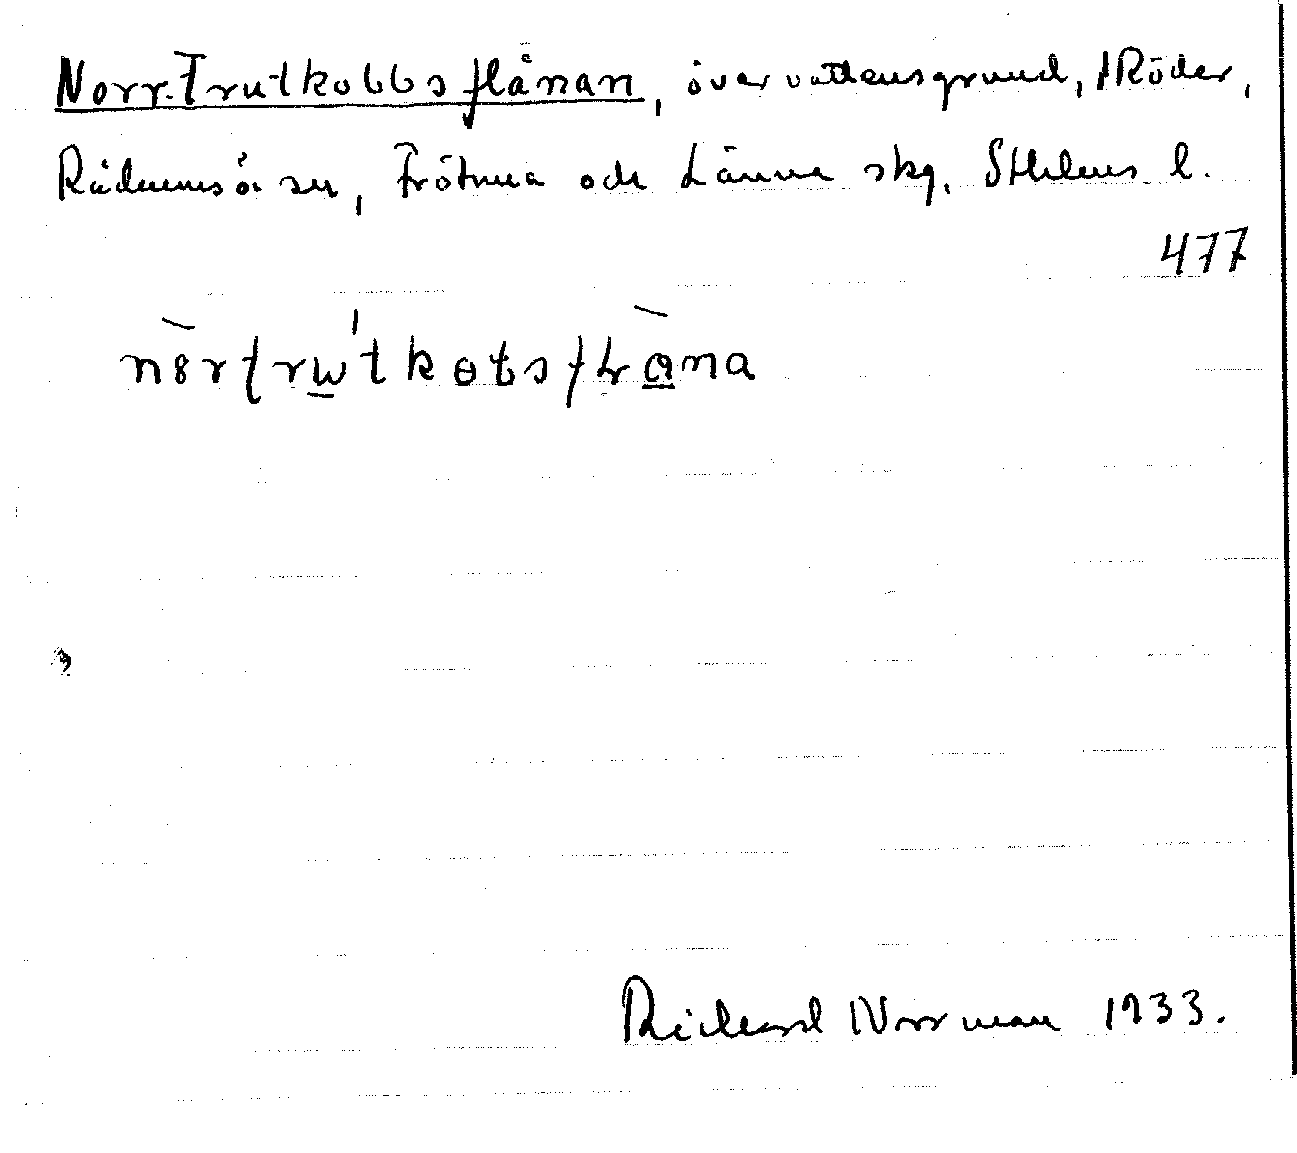 Norr-Trutkobbsflånan, övervattensgrund, Röder,
Rådmansö sn, Frötuna och Länna skg, Sthlms l.
477
Rickard Norrman 1933.